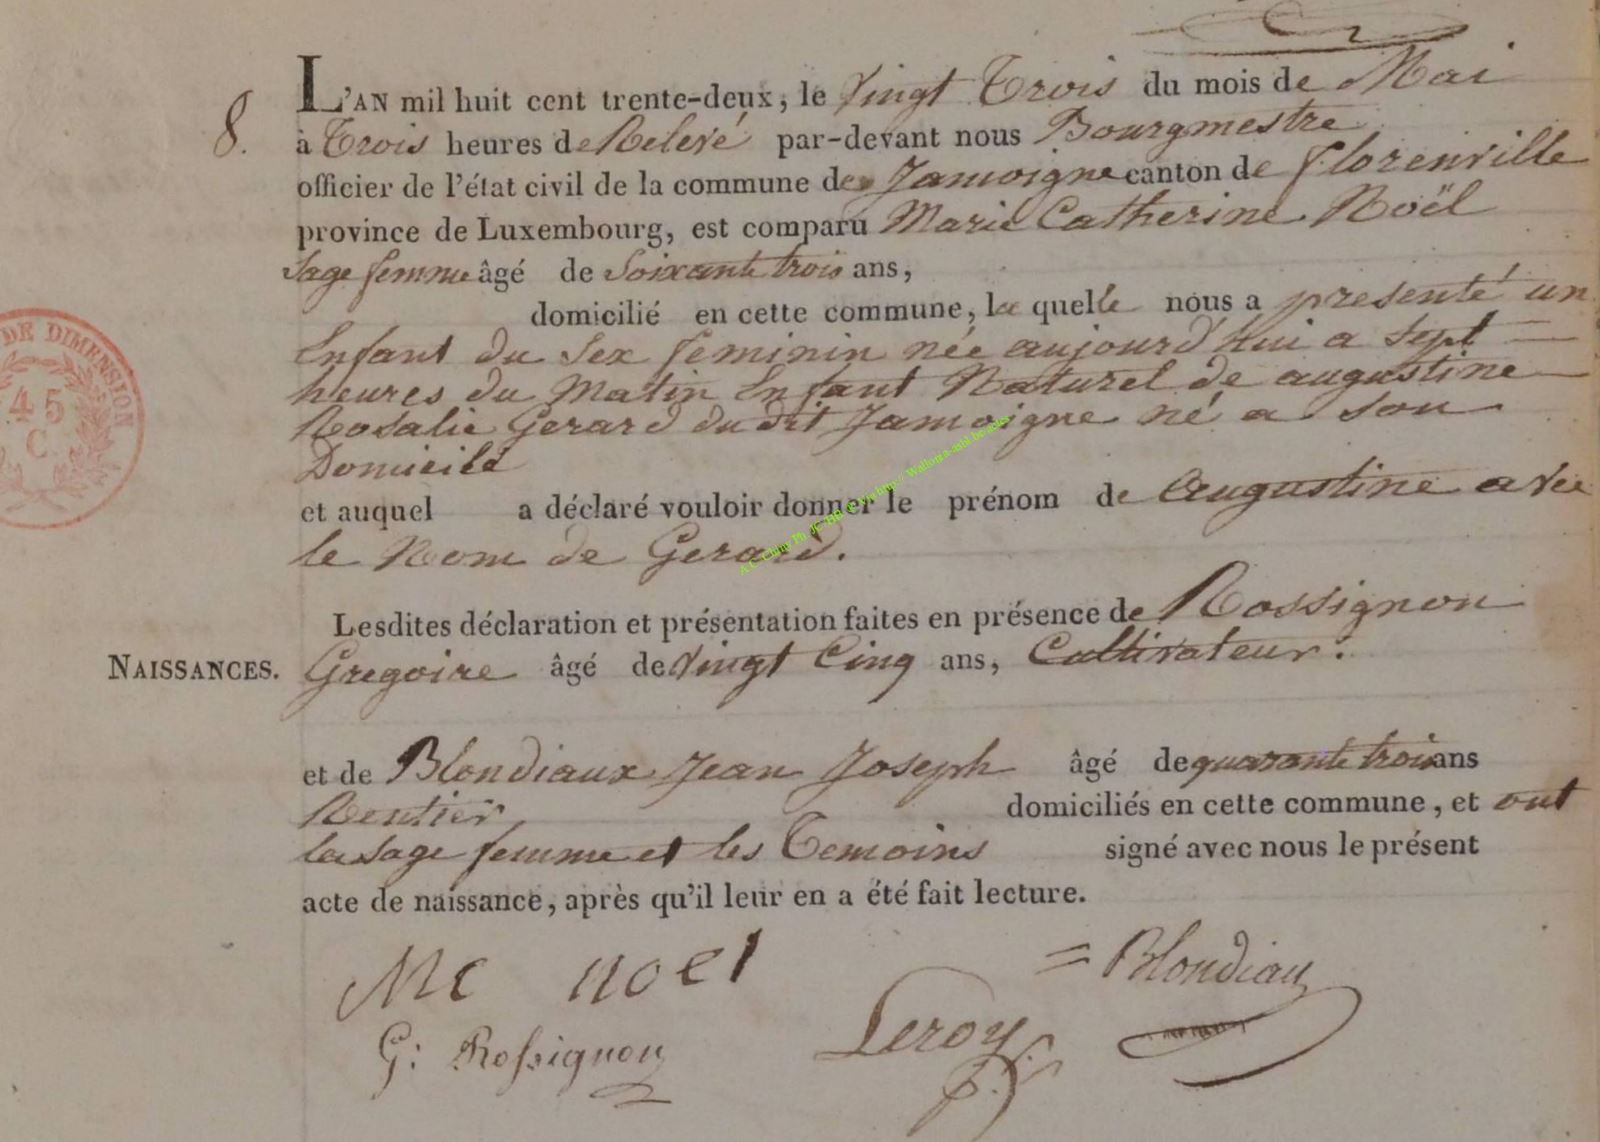 L'AN mil huit cent trente-deux, le Vingt Trois du mois de Mai
8. à Trois heures de Relevé par-devant nous Bourgmestre
officier de l'état civil de la commune de Jamoigne canton de florenville
province de Luxembourg, est comparu Marie Catherine Noël
Sage femme âgé de Soixante trois ans,
domicilié en cette commune, la quelle nous a presenté un
Enfant du Sex feminin née aujourd'hui a Sept
heures du Matin Enfant Naturel de augustine
Rosalie Gerard du dit Jamoigne né a son
Domicile
et auquel a déclaré vouloir donner le prénom de Augustine avec
le Nom de Gerard.
Lesdites déclaration et présentation faites en présence de Rossignon
NAISSANCES. Gregoire âgé de Vingt Cinq ans, Cultivateur.
et de Blondiaux Jean Joseph âgé de quarante trois ans
Rentier domiciliés en cette commune, et ont
la Sage femme et les Temoins signé avec nous le présent
acte de naissance, après qu'il leur en a été fait lecture.
MC noel = Blondiau
G: Rossignon Leroy
DE DIMENSION
45
C.